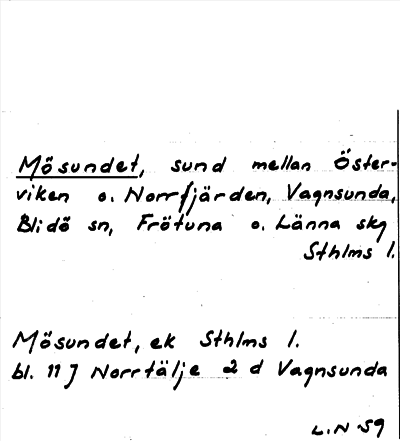 Mösundet, sund mellan Öster-
viken o. Norrfjärden, Vagnsunda,
Blidö sn, Frötuna o. Länna skg
Sthlms l.
Mösundet, ek Sthlms l.
bl. 11 J Norrtälje 2 d Vagnsunda
L.N 59